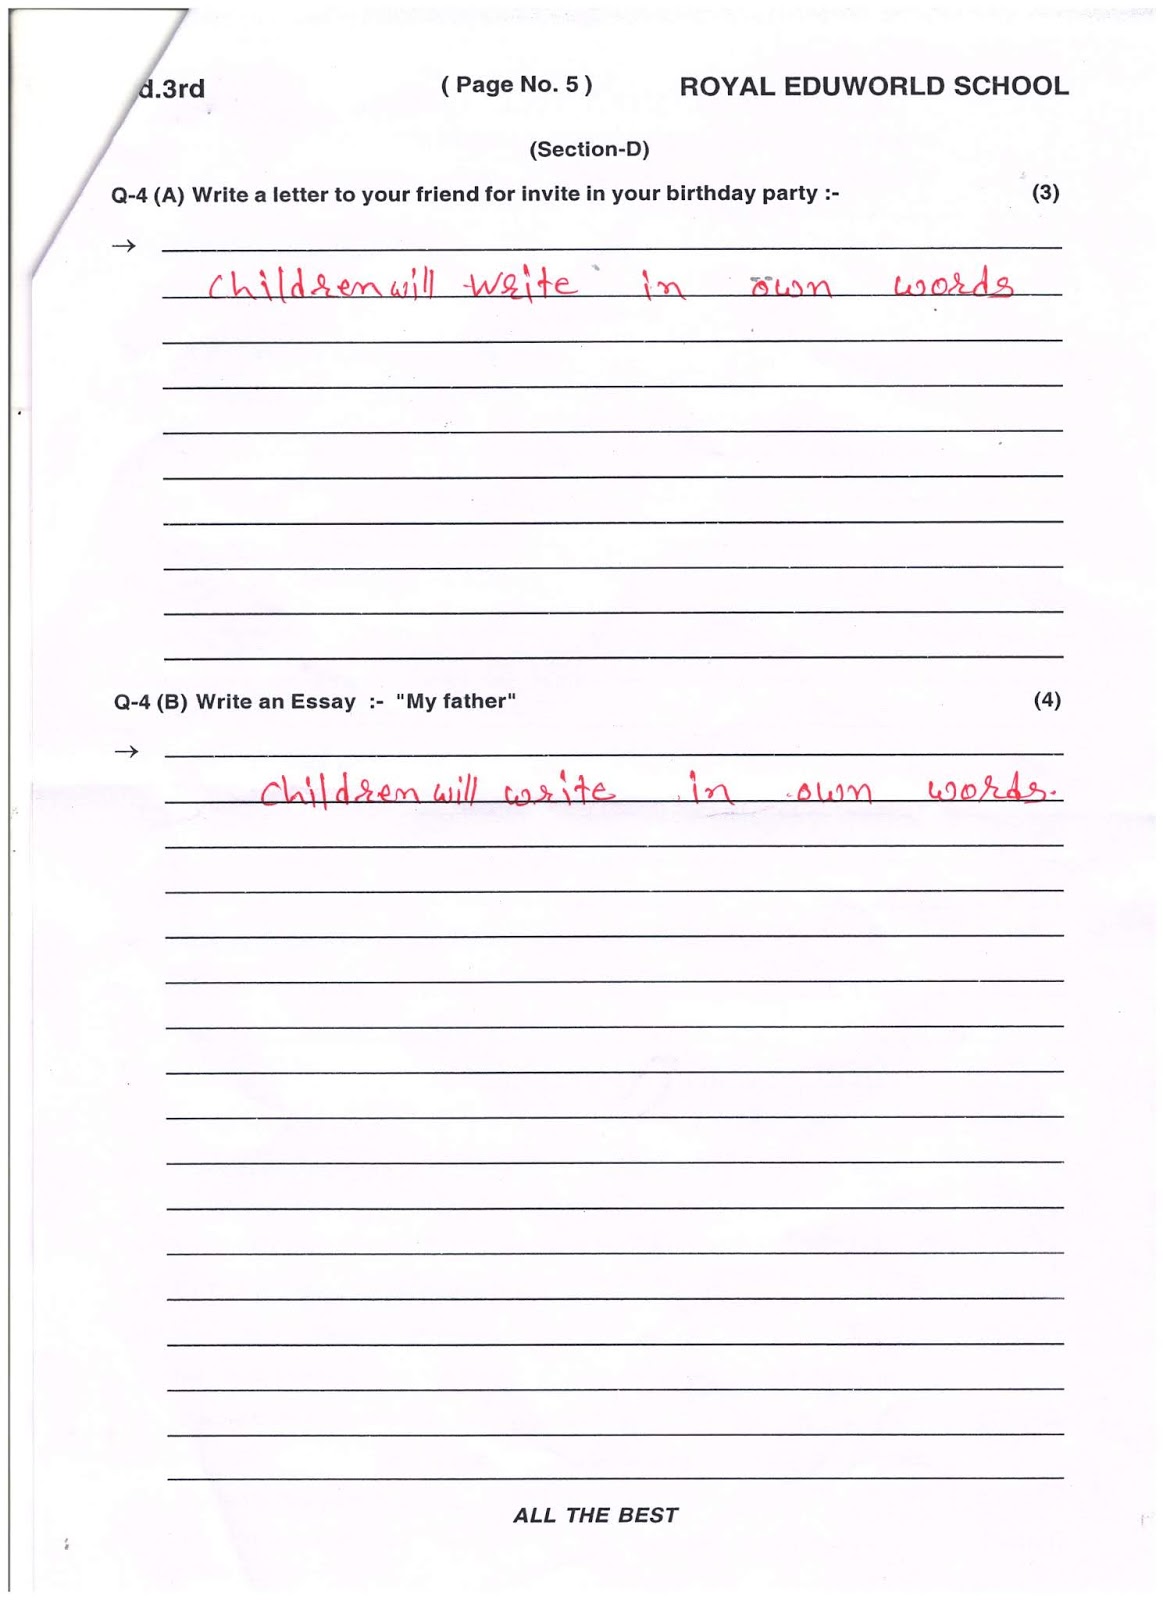 d.3rd ( Page No. 5 ) ROYAL EDUWORLD SCHOOL
(Section-D)
Q-4 (A) Write a letter to your friend for invite in your birthday party :- (3)
→
children will write in own words
Q-4 (B) Write an Essay :- "My father" (4)
→
children will write in own words.
ALL THE BEST